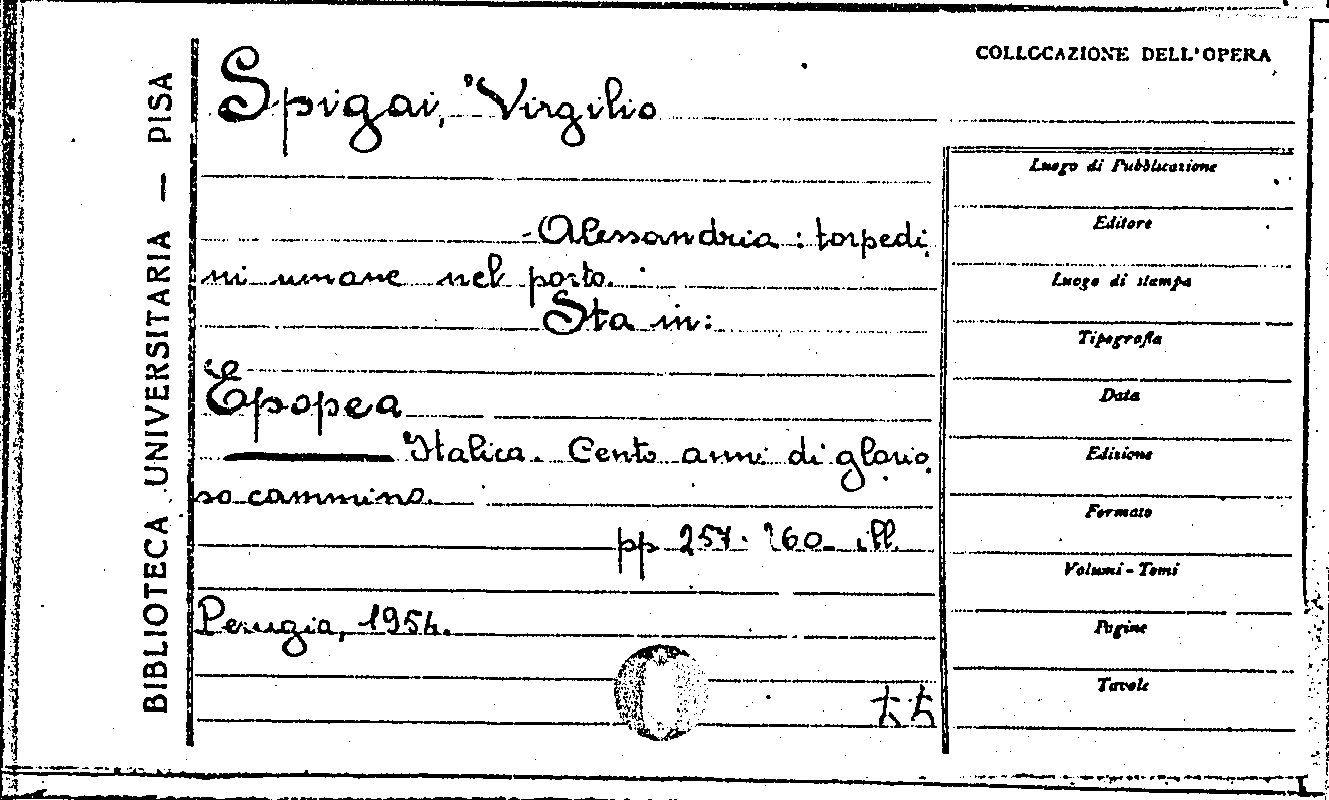 BIBLIOTECA UNIVERSITARIA — PISA
COLLOCAZIONE DELL'OPERA
Spigai, Virgilio
- Alessandria : torpedi
ni umane nel porto.
Sta in:
Epopea
Italica. Cento anni di glorio
so cammino.
pp 257-260 ill
Perugia, 1954.
Luogo di Pubblicazione
Editore
Luogo di stampa
Tipografia
Data
Edizione
Formato
Volumi - Tomi
Pagine
Tavole